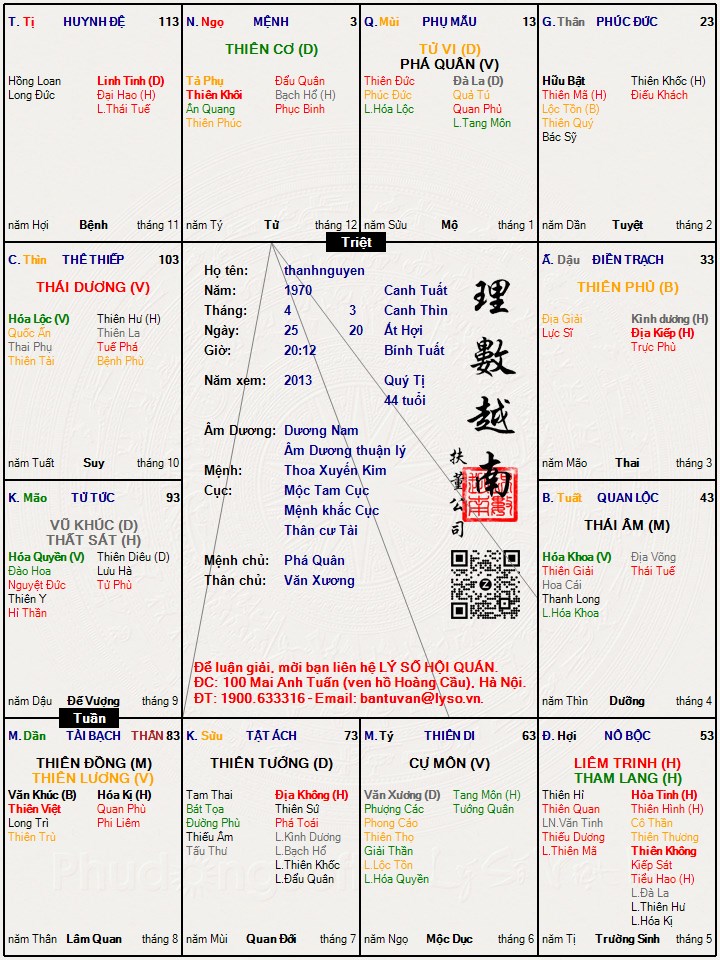 T. Tị HUYNH ĐỆ 113
Hồng Loan Linh Tinh (D)
Long Đức Đại Hao (H)
L.Thái Tuế
năm Hợi Bệnh tháng 11
N. Ngọ MỆNH 3
THIÊN CƠ (D)
Tả Phụ Đẩu Quân
Thiên Khôi Bạch Hổ (H)
Ân Quang Phục Binh
Thiên Phúc
năm Tý Tử tháng 12
Q. Mùi PHỤ MẪU 13
TỬ VI (D)
PHÁ QUÂN (V)
Thiên Đức Đà La (D)
Phúc Đức Quả Tú
L.Hóa Lộc Quan Phủ
L.Tang Môn
năm Sửu Mộ tháng 1
G. Thân PHÚC ĐỨC 23
Hữu Bật Thiên Khốc (H)
Thiên Mã (H) Điếu Khách
Lộc Tồn (B)
Thiên Quý
Bác Sỹ
năm Dần Tuyệt tháng 2
Triệt
C. Thìn THÊ THIẾP 103
THÁI DƯƠNG (V)
Hóa Lộc (V) Thiên Hư (H)
Quốc Ấn Thiên La
Thai Phụ Tuế Phá
Thiên Tài Bệnh Phù
năm Tuất Suy tháng 10
Họ tên: thanhnguyen
Năm: 1970 Canh Tuất
Tháng: 4 3 Canh Thìn
Ngày: 25 20 Ất Hợi
Giờ: 20:12 Bính Tuất
Năm xem: 2013 Quý Tị
44 tuổi
Âm Dương: Dương Nam
Âm Dương thuận lý
Mệnh: Thoa Xuyến Kim
Cục: Mộc Tam Cục
Mệnh khắc Cục
Thân cư Tài
Mệnh chủ: Phá Quân
Thân chủ: Văn Xương
理數越南
扶董公司
Để luận giải, mời bạn liên hệ LÝ SỐ HỘI QUÁN.
ĐC: 100 Mai Anh Tuấn (ven hồ Hoàng Cầu), Hà Nội.
ĐT: 1900.633316 - Email: bantuvan@lyso.vn.
Ấ. Dậu ĐIỀN TRẠCH 33
THIÊN PHỦ (B)
Địa Giải Kình dương (H)
Lực Sĩ Địa Kiếp (H)
Trực Phù
năm Mão Thai tháng 3
K. Mão TỬ TỨC 93
VŨ KHÚC (D)
THẤT SÁT (H)
Hóa Quyền (V) Thiên Diêu (D)
Đào Hoa Lưu Hà
Nguyệt Đức Tử Phù
Thiên Y
Hỉ Thần
năm Dậu Đế Vượng tháng 9
B. Tuất QUAN LỘC 43
THÁI ÂM (M)
Hóa Khoa (V) Địa Võng
Thiên Giải Thái Tuế
Hoa Cái
Thanh Long
L.Hóa Khoa
năm Thìn Dưỡng tháng 4
Tuần
M. Dần TÀI BẠCH THÂN 83
THIÊN ĐỒNG (M)
THIÊN LƯƠNG (V)
Văn Khúc (B) Hóa Kị (H)
Thiên Việt Quan Phù
Long Trì Phi Liêm
Thiên Trù
năm Thân Lâm Quan tháng 8
K. Sửu TẬT ÁCH 73
THIÊN TƯỚNG (D)
Tam Thai Địa Không (H)
Bát Tọa Thiên Sứ
Đường Phù Phá Toái
Thiếu Âm L.Kình Dương
Tấu Thư L.Bạch Hổ
L.Thiên Khốc
L.Đẩu Quân
năm Mùi Quan Đới tháng 7
M. Tý THIÊN DI 63
CỰ MÔN (V)
Văn Xương (D) Tang Môn (H)
Phượng Các Tướng Quân
Phong Cáo
Thiên Thọ
Giải Thần
L.Lộc Tồn
L.Hóa Quyền
năm Ngọ Mộc Dục tháng 6
Đ. Hợi NÔ BỘC 53
LIÊM TRINH (H)
THAM LANG (H)
Thiên Hỉ Hỏa Tinh (H)
Thiên Quan Thiên Hình (H)
LN.Văn Tinh Cô Thần
Thiếu Dương Thiên Thương
L.Thiên Mã Thiên Không
Kiếp Sát
Tiểu Hao (H)
L.Đà La
L.Thiên Hư
L.Hóa Kị
năm Tị Trường Sinh tháng 5